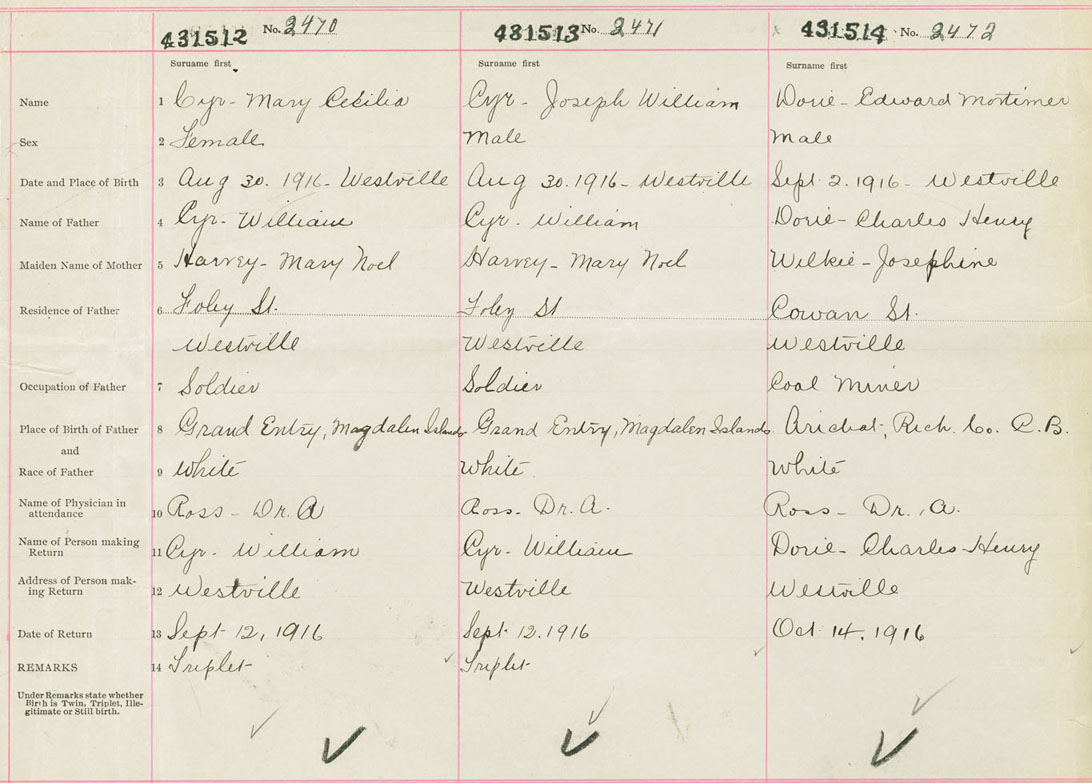 431512 No. 2470 431513 No. 2471 431514 No. 2472
Surname first Surname first Surname first
Name 1 Cyr - Mary Cecilia Cyr - Joseph William Dorie - Edward Mortimer
Sex 2 Female Male Male
Date and Place of Birth 3 Aug 30. 1916 - Westville Aug 30. 1916 - Westville Sept 2. 1916 - Westville
Name of Father 4 Cyr - William Cyr - William Dorie - Charles Henry
Maiden Name of Mother 5 Harvey - Mary Noel Harvey - Mary Noel Wilkie - Josephine
Residence of Father 6 Foley St. Foley St Cowan St.
Westville Westville Westville
Occupation of Father 7 Soldier Soldier Coal Miner
Place of Birth of Father 8 Grand Entry, Magdalen Islands Grand Entry, Magdalen Islands Arichat, Rich. Co. C.B.
and
Race of Father 9 White White White
Name of Physician in
attendance 10 Ross - Dr. A Ross - Dr. A. Ross - Dr. A.
Name of Person making
Return 11 Cyr - William Cyr - William Dorie - Charles Henry
Address of Person mak-
ing Return 12 Westville Westville Westville
Date of Return 13 Sept 12, 1916 Sept 12. 1916 Oct 14. 1916
REMARKS 14 Triplet Triplet
Under Remarks state whether
Birth is Twin, Triplet, Ille-
gitimate or Still birth.